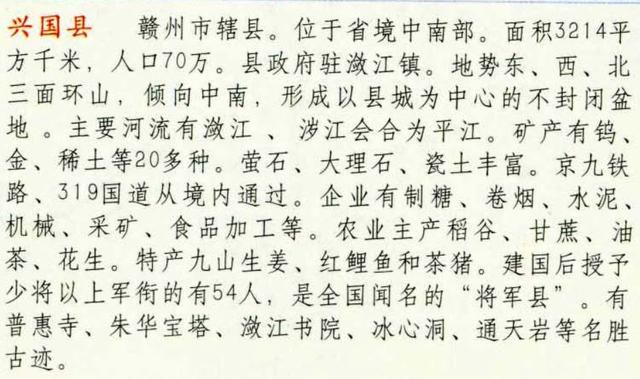 兴国县 赣州市辖县。位于省境中南部。面积3214平
方千米，人口70万。县政府驻潋江镇。地势东、西、北
三面环山，倾向中南，形成以县城为中心的不封闭盆
地。主要河流有潋江、涉江会合为平江。矿产有钨、
金、稀土等20多种。萤石、大理石、瓷土丰富。京九铁
路、319国道从境内通过。企业有制糖、卷烟、水泥、
机械、采矿、食品加工等。农业主产稻谷、甘蔗、油
茶、花生。特产九山生姜、红鲤鱼和茶猪。建国后授予
少将以上军衔的有54人，是全国闻名的“将军县”。有
普惠寺、朱华宝塔、潋江书院、冰心洞、通天岩等名胜
古迹。